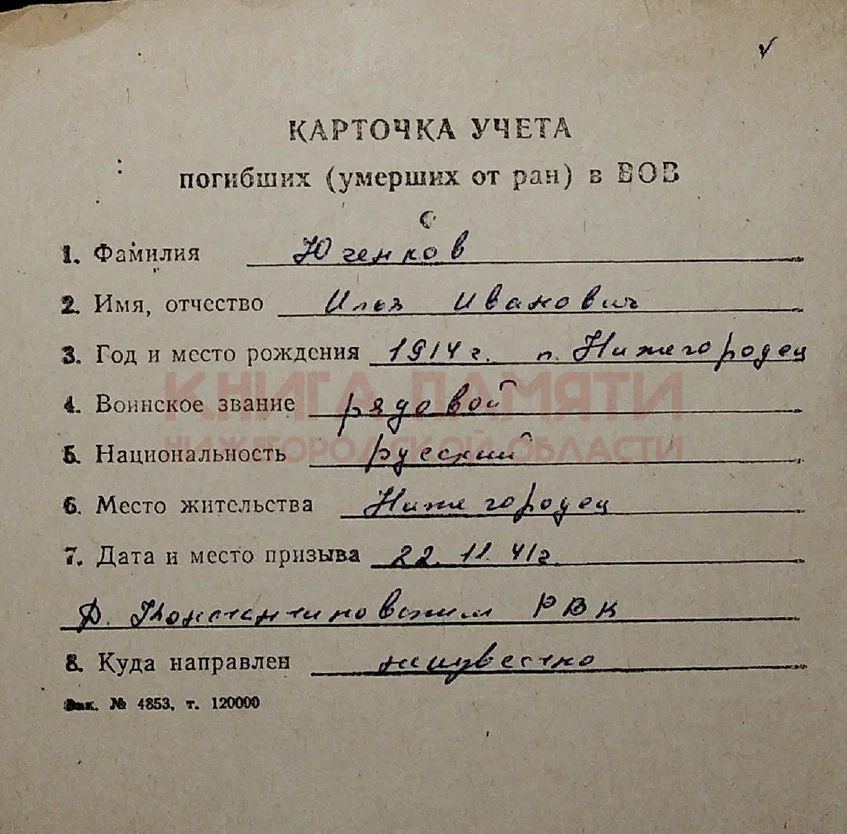 КАРТОЧКА УЧЕТА
погибших (умерших от ран) в ВОВ
1. Фамилия Юченков
2. Имя, отчество Илья Иванович
3. Год и место рождения 1914 г. п. Нижегородец
КНИГА ПАМЯТИ
4. Воинское звание рядовой
НИЖЕГОРОДСКОЙ ОБЛАСТИ
5. Национальность русский
6. Место жительства Нижегородец
7. Дата и место призыва 22.11.41г.
Д. Константиновским РВК
8. Куда направлен неизвестно
Зак. № 4853, т. 120000